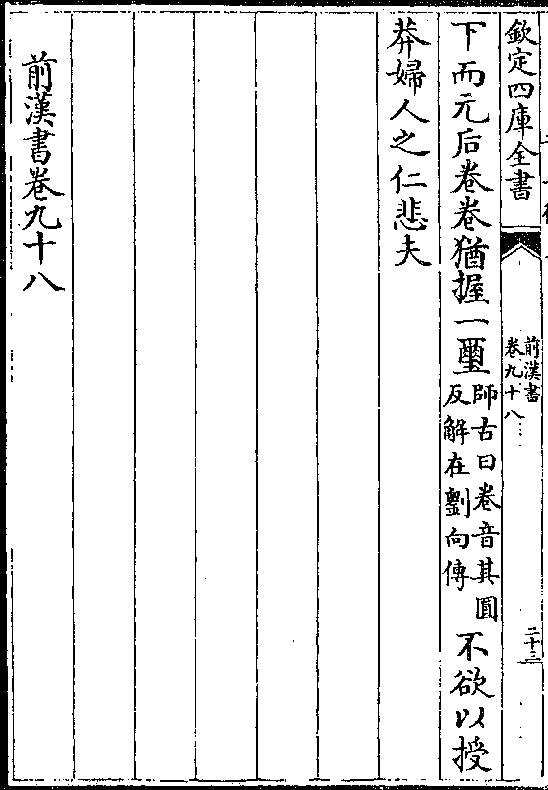 欽定四庫全書
前漢書
卷九十八
二十三
下而元后卷卷猶握一璽師古曰卷音其圓
反解在劉向傳不欲以授
莽婦人之仁悲夫
前漢書卷九十八